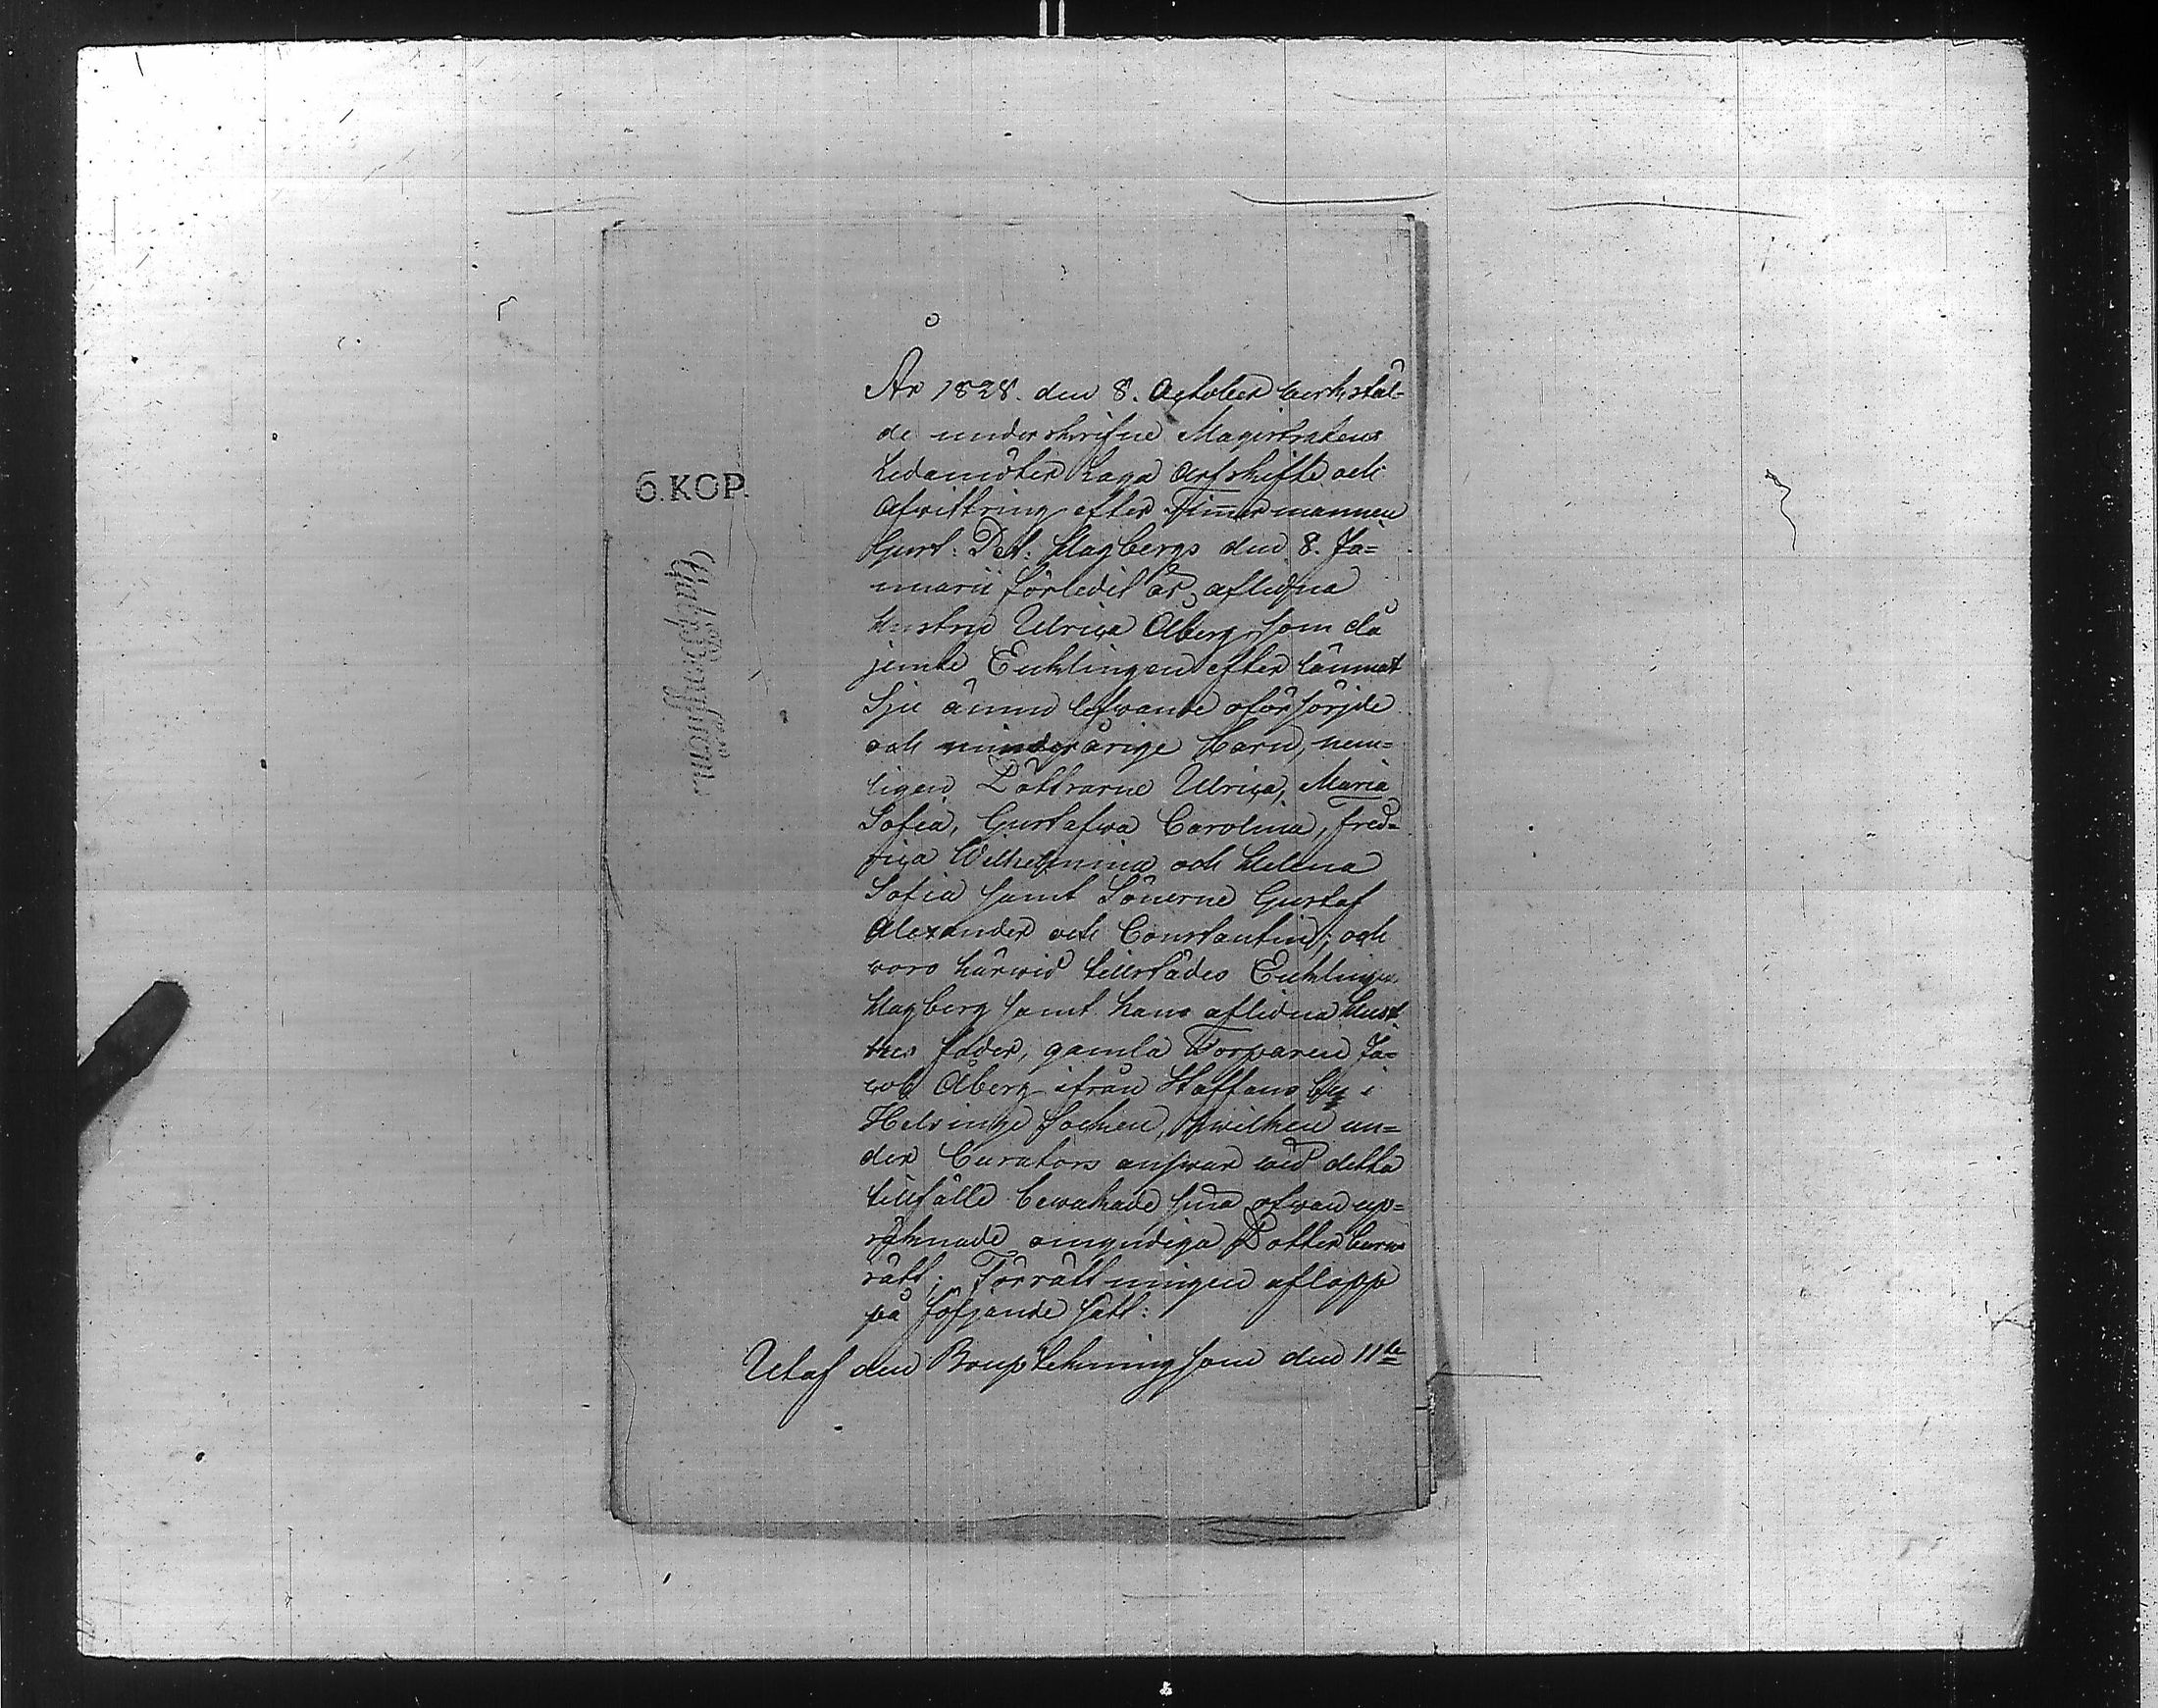 År 1828. den 8. October werkstäl-
de underskrifne Magistratens
Ledamöter Laga Arfskifte och
Afwittring efter Timmermannen
Gust: Det: Hagbergs den 8. Ja-
nuarii förledit år, aflidna
Hustru Ulrica Åberg, som då
jemte Enklingen efter lämnat
Sju ännu lefwande oförsörjde
och minderårige barn, nem-
ligen Döttrarne Ulrica, Maria
Sofia, Gustafwa Carolina, Fred-
rica Wilhelmina och Helena
Sofia samt Sönerne Gustaf
Alexander och Constantin; och
woro härwid tillstädes Enklingen
Hagberg samt hans aflidna Hust
rus fader, gamla Torparen Ja-
cob Åberg ifrån Staffans by i
Helsinge Sochen, hwilken un-
der Curators answar wid detta
tillfälle bewakade sina ofwan up-
räknade omyndiga Dotter barns
rätt; Förrättningen aflopp
på följande sätt:
Utaf den Bouptekning som den 11te
6. KOP.